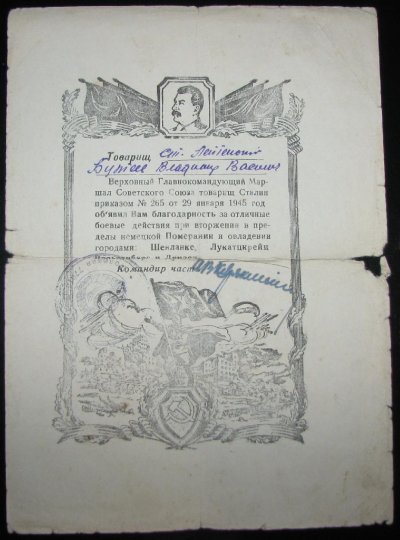 Товарищ ст. Лейтенант
Владимир
Верховный Главнокомандующий Мар-
шал Советского Союза товарищ Сталин
приказом № 265 от 29 января 1945 год
об'явил Вам благодарность за отличные
боевые действия при вторжении в пре-
делы немецкой Померании и овладении
городами: Шенланке, Лукатцкрейц
Командир части